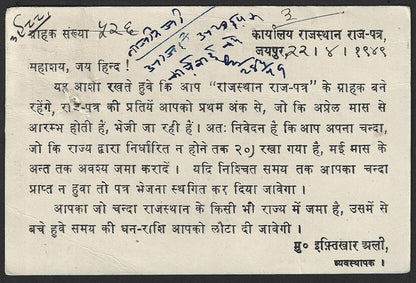 ३
ग्राहक संख्या ५२६
कार्यालय राजस्थान राज-पत्र,
जयपुर, २२।४।१९४९
महाशय, जय हिन्द !
यह आशा रखते हुवे कि आप “राजस्थान राज-पत्र” के ग्राहक बने
रहेंगे, राज-पत्र की प्रतियें आपको प्रथम अंक से, जो कि अप्रेल मास से
आरम्भ होती हैं, भेजी जा रही हैं। अतः निवेदन है कि आप अपना चन्दा,
जो कि राज्य द्वारा निर्धारित न होने तक २०) रखा गया है, मई मास के
अन्त तक अवश्य जमा करादें । यदि निश्चित समय तक आपका चन्दा
प्राप्त न हुवा तो पत्र भेजना स्थगित कर दिया जावेगा ।
आपका जो चन्दा राजस्थान के किसी भी राज्य में जमा है, उसमें से
बचे हुवे समय की धन-राशि आपको लौटा दी जावेगी ।
मु० इफ़्तिखार अली,
व्यवस्थापक ।